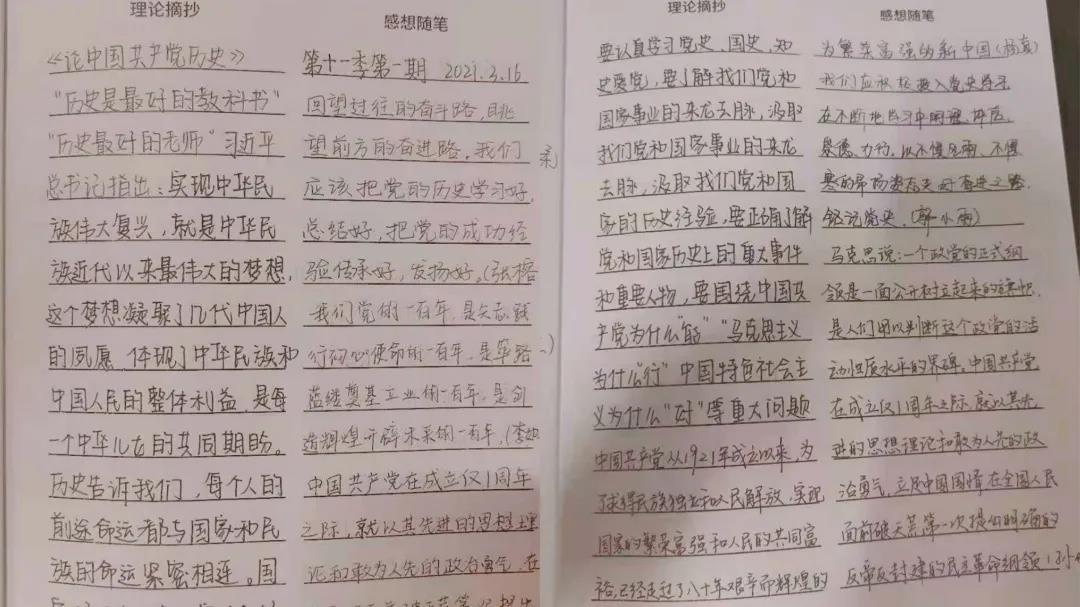 理论摘抄
《论中国共产党历史》
“历史是最好的教科书”
“历史最好的老师”习近平
总书记指出：实现中华民
族伟大复兴，就是中华民
族近代以来最伟大的梦想，
这个梦想凝聚了几代中国人
的夙愿，体现了中华民族和
中国人民的整体利益，是每
一个中华儿女的共同期盼。
历史告诉我们，每个人的
前途命运都与国家和民
族的命运紧密相连。国
感想随笔
第十一季第一期 2021.3.16
回望过往的奋斗路，眺
望前方的奋进路，我们
应该把党的历史学习好，
总结好，把党的成功经
验传承好，发扬好。(张榕
我们党的一百年，是矢志践
行初心使命的一百年，是筚路
蓝缕奠基立业的一百年，是创
造辉煌开辟未来的一百年，(李
中国共产党在成立仅1周年
之际，就以其先进的思想理
论和敢为人先的政治勇气，在
理论摘抄
要认真学习党史、国史，知
史爱党，要了解我们党和
国家事业的来龙去脉，汲取
我们党和国家事业的来龙
去脉，汲取我们党和国
家的历史经验，要正确了解
党和国家历史上的重大事件
和重要人物，要围绕中国共
产党为什么“能”“马克思主义
为什么“行”中国特色社会主
义为什么“好”等重大问题
中国共产党从1921年成立以来，为
了求得民族独立和人民解放，实现
国家的繁荣富强和人民的共同富
裕，已经走过了八十年艰辛而辉煌的
感想随笔
为繁荣富强的新中国(杨
我们应积极投入党史学习
在不断地学习中明理、
力行，以不惧风雨、不惧
的昂扬姿态走好奋进之路
铭记党史，(郭小雨)
马克思说：一个政党的正式纲
领是一面公开树立起来的旗帜，
是人们用以判断这个政党的活
动性质水平的界碑。中国共产党
在成立仅1周年之际，就以其先
进的思想理论和敢为人先的政
治勇气，立足中国国情在全国人民
面前破天荒第一次提出明确的
反帝反封建的民主革命纲领(孙